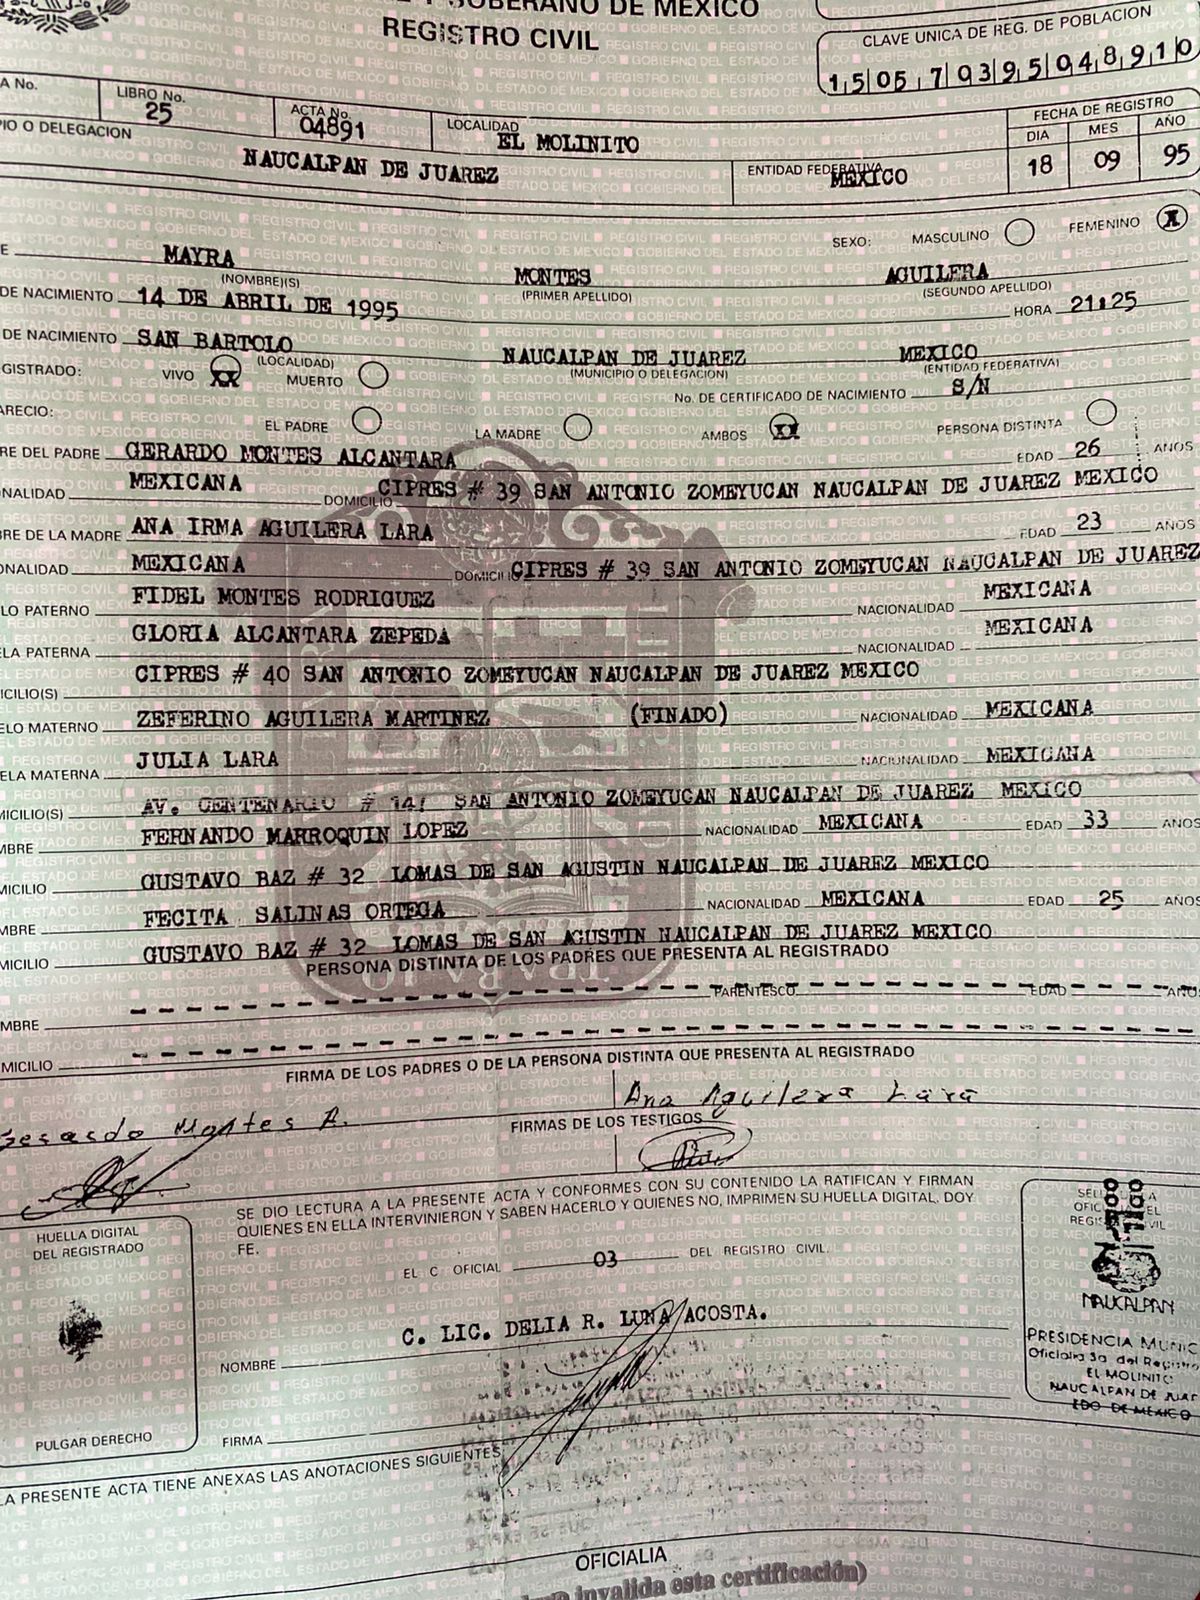 SOBERANO DE MEXICO
REGISTRO CIVIL
CLAVE UNICA DE REG. DE POBLACION
1 5 05 7 0 3 9 5 0 4 8 9 1 0
A No.
LIBRO No.
25
ACTA No.
04891
LOCALIDAD
EL MOLINITO
FECHA DE REGISTRO
DIA MES AÑO
18 09 95
PIO O DELEGACION
NAUCALPAN DE JUAREZ
ENTIDAD FEDERATIVA
MEXICO
SEXO: MASCULINO FEMENINO X
E MAYRA MONTES AGUILERA
(NOMBRE)(S) (PRIMER APELLIDO) (SEGUNDO APELLIDO)
DE NACIMIENTO 14 DE ABRIL DE 1995 HORA 21:25
DE NACIMIENTO SAN BARTOLO NAUCALPAN DE JUAREZ MEXICO
(LOCALIDAD) (MUNICIPIO O DELEGACION) (ENTIDAD FEDERATIVA)
GISTRADO: VIVO XX MUERTO No. DE CERTIFICADO DE NACIMIENTO S/N
ARECIO: EL PADRE LA MADRE AMBOS XX PERSONA DISTINTA
RE DEL PADRE GERARDO MONTES ALCANTARA EDAD 26 AÑOS
ONALIDAD MEXICANA DOMICILIO CIPRES # 39 SAN ANTONIO ZOMEYUCAN NAUCALPAN DE JUAREZ MEXICO
BRE DE LA MADRE ANA IRMA AGUILERA LARA EDAD 23 AÑOS
ONALIDAD MEXICANA DOMICILIO CIPRES # 39 SAN ANTONIO ZOMEYUCAN NAUCALPAN DE JUAREZ
LO PATERNO FIDEL MONTES RODRIGUEZ NACIONALIDAD MEXICANA
LA PATERNA GLORIA ALCANTARA ZEPEDA NACIONALIDAD MEXICANA
ICILIO(S) CIPRES # 40 SAN ANTONIO ZOMEYUCAN NAUCALPAN DE JUAREZ MEXICO
ELO MATERNO ZEFERINO AGUILERA MARTINEZ (FINADO) NACIONALIDAD MEXICANA
ELA MATERNA JULIA LARA NACIONALIDAD MEXICANA
MICILIO(S) AV. CENTENARIO # 141 SAN ANTONIO ZOMEYUCAN NAUCALPAN DE JUAREZ MEXICO
MBRE FERNANDO MARROQUIN LOPEZ NACIONALIDAD MEXICANA EDAD 33 AÑOS
MICILIO GUSTAVO BAZ # 32 LOMAS DE SAN AGUSTIN NAUCALPAN DE JUAREZ MEXICO
MBRE FECITA SALINAS ORTEGA NACIONALIDAD MEXICANA EDAD 25 AÑOS
MICILIO GUSTAVO BAZ # 32 LOMAS DE SAN AGUSTIN NAUCALPAN DE JUAREZ MEXICO
PERSONA DISTINTA DE LOS PADRES QUE PRESENTA AL REGISTRADO
MBRE PARENTESCO EDAD AÑOS
MICILIO
FIRMA DE LOS PADRES O DE LA PERSONA DISTINTA QUE PRESENTA AL REGISTRADO
Gerardo Montes A. Ana Aguilera Lara
FIRMAS DE LOS TESTIGOS
SE DIO LECTURA A LA PRESENTE ACTA Y CONFORMES CON SU CONTENIDO LA RATIFICAN Y FIRMAN
QUIENES EN ELLA INTERVINIERON Y SABEN HACERLO Y QUIENES NO, IMPRIMEN SU HUELLA DIGITAL. DOY
FE.
HUELLA DIGITAL
DEL REGISTRADO
PULGAR DERECHO
EL C OFICIAL 03 DEL REGISTRO CIVIL.
NOMBRE C. LIC. DELIA R. LUNA ACOSTA.
FIRMA
NAUCALPAN
PRESIDENCIA MUNIC
Oficialia 3a del Registro
EL MOLINITO
NAUCALPAN DE JUAR
EDO DE MEXICO
LA PRESENTE ACTA TIENE ANEXAS LAS ANOTACIONES SIGUIENTES
OFICIALIA
invalida esta certificación)
TRABAJO